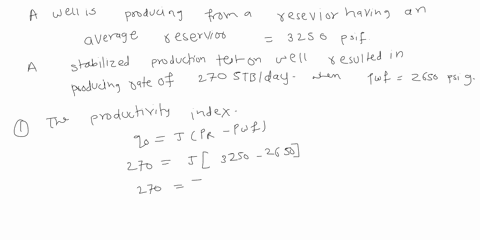 A well is producing from a resevior having an
average reservior = 3250 psif.
A stabilized production test on well resulted in
producing rate of 270 STB/day. when Pwf = 2650 psi g.
① The productivity index.
qo = J (PR - Pwf)
270 = J [ 3250 - 2650]
270 =